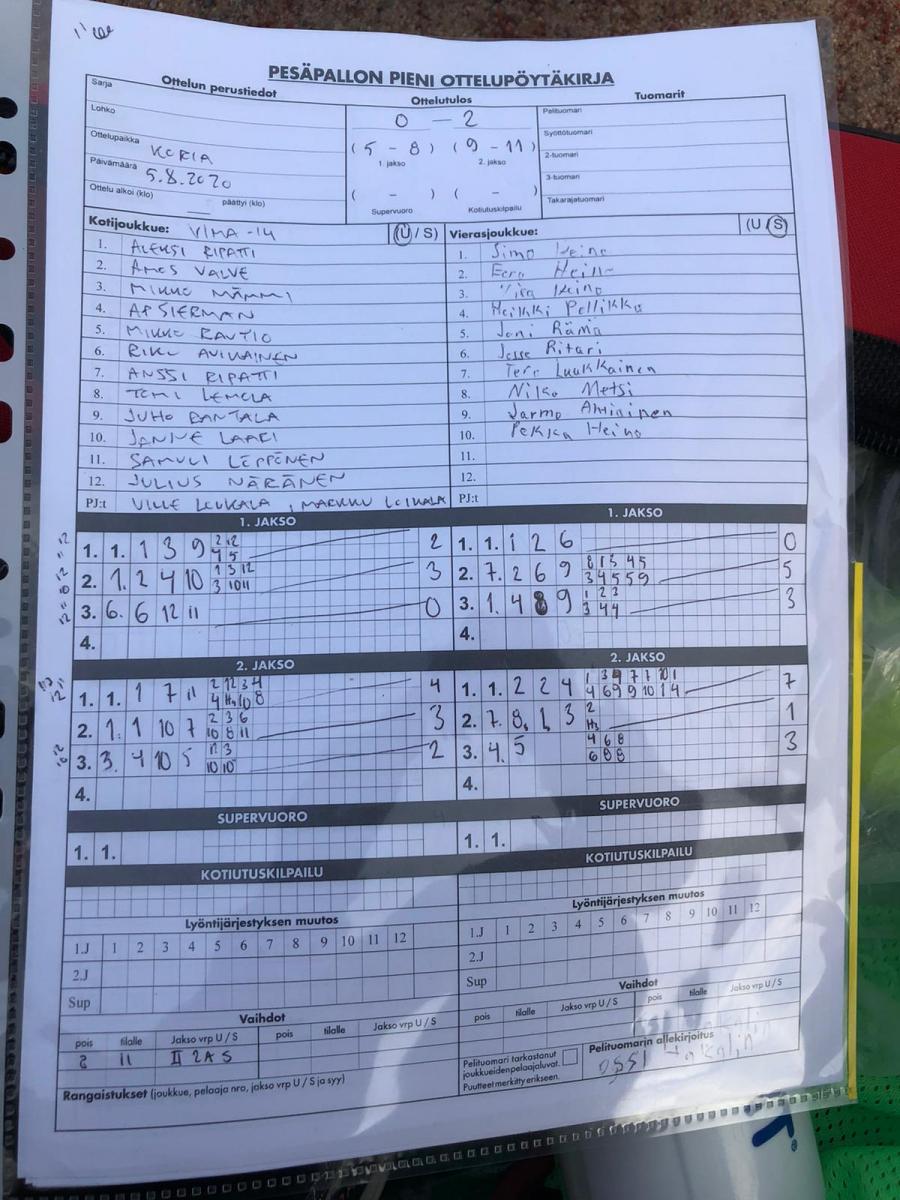 PESÄPALLON PIENI OTTELUPÖYTÄKIRJA
Ottelun perustiedot
Ottelutulos
Tuomarit
Sarja
Lohko
Ottelupaikka KORIA
Päivämäärä 5.8.2020
Ottelu alkoi (klo) päättyi (klo)
0 - 2
(5 - 8) (9 - 11)
1. jakso 2. jakso
( - ) ( - )
Supervuoro Kotiutuskilpailu
Pelituomari
Syöttötuomari
2-tuomari
3-tuomari
Takarajatuomari
Kotijoukkue: VIMA -14 (U / S)
1. ALEKSI RIPATTI
2. AMOS VALVE
3. MIKKO MÄMMI
4. AP SIERMAN
5. MIKKO RAUTIO
6. RIKU AVIKAINEN
7. ANSSI RIPATTI
8. TOMI LEMOLA
9. JUHO RANTALA
10. JANNE LAARI
11. SAMULI LEPPÄNEN
12. JULIUS NÄRÄNEN
PJ:t VILLE LOIKALA, MARKKU LOIKALA
Vierasjoukkue: (U / S)
1. Simo Heino
2. Eero
3. Heino
4. Heikki Pellikka
5. Joni Rämä
6. Jesse Ritari
7. Tero Luukkainen
8. Niko Metsi
9. Jarmo
10. Pekka Heino
11.
12.
PJ:t
1. JAKSO
1. 1. 1 3 9 2 12 2
4 5
2. 1. 2 4 10 1 3 12 3
3 10 11
3. 6. 6 12 11 0
4.
1. JAKSO
1. 1. 1 2 6 0
2. 7. 2 6 9 8 1 3 4 5 5
3 4 5 5 9
3. 1. 4 8 9 1 2 3 3
3 4 4
4.
2. JAKSO
1. 1. 1 7 11 2 12 3 4 4
4 10 8
2. 1. 1 10 7 2 3 6 3
10 8 11
3. 3. 4 10 5 3 2
10 10
4.
2. JAKSO
1. 1. 2 2 4 1 3 9 7 7 10 1 7
4 6 9 9 10 1 4
2. 7. 8. 1 3 2 1
3. 4. 5 4 6 8 3
6 8 8
4.
SUPERVUORO
1. 1.
KOTIUTUSKILPAILU
SUPERVUORO
1. 1.
KOTIUTUSKILPAILU
Lyöntijärjestyksen muutos
1.J 1 2 3 4 5 6 7 8 9 10 11 12
2.J
Sup
Lyöntijärjestyksen muutos
1.J 1 2 3 4 5 6 7 8 9 10 11 12
2.J
Sup
Vaihdot
pois tilalle Jakso vrp U / S pois tilalle Jakso vrp U / S
11 II 2A S
Vaihdot
pois tilalle Jakso vrp U / S pois tilalle Jakso vrp U / S
Rangaistukset (joukkue, pelaaja nro, jakso vrp U / S ja syy)
Pelituomari tarkastanut
joukkueiden pelaajaluvat.
Puutteet merkitty erikseen.
Pelituomarin allekirjoitus